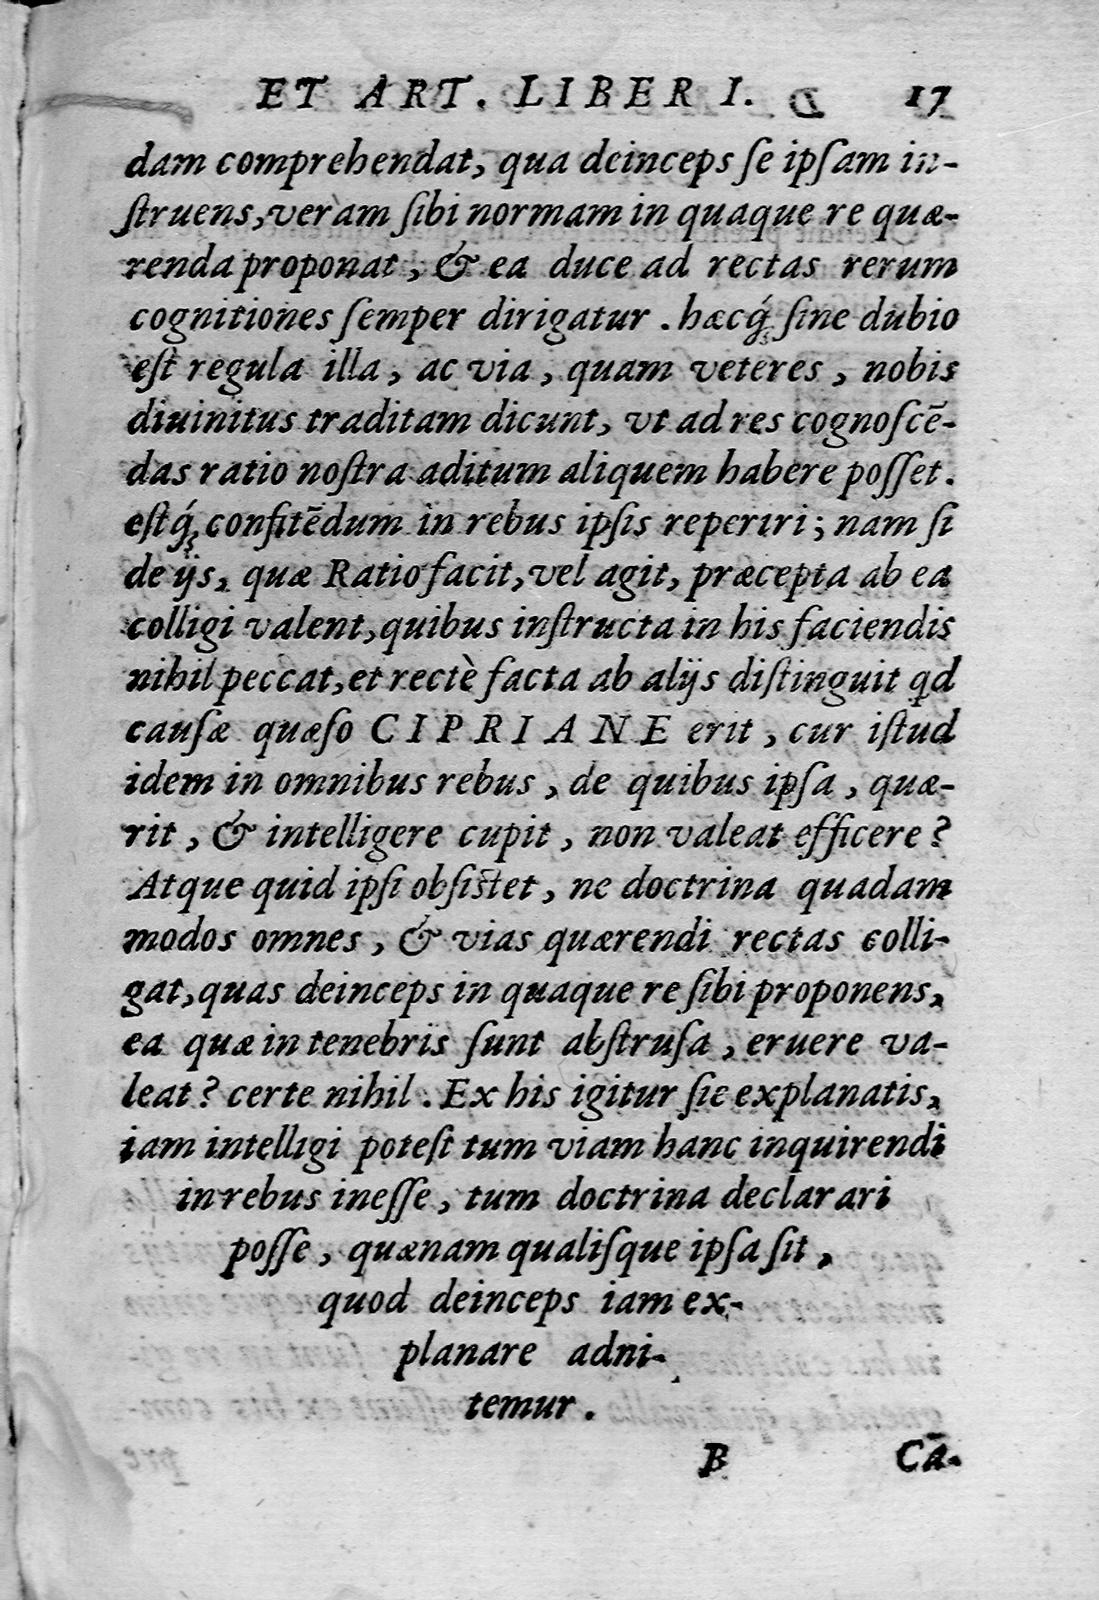 ET ART. LIBER I. 17
dam comprehendat, qua deinceps ſe ipſam in-
ſtruens, veram ſibi normam in quaque re quæ-
renda proponat, & ea duce ad rectas rerum
cognitiones ſemper dirigatur. hæcq́; ſine dubio
eſt regula illa, ac via, quam veteres, nobis
diuinitus traditam dicunt, vt ad res cognoſcē-
das ratio noſtra aditum aliquem habere poſſet.
eſtq́; confitēdum in rebus ipſis reperiri; nam ſi
de ijs, quæ Ratio facit, vel agit, præcepta ab ea
colligi valent, quibus inſtructa in his faciendis
nihil peccat, et rectè facta ab alijs diſtinguit qd
cauſæ quæſo CIPRIANE erit, cur iſtud
idem in omnibus rebus, de quibus ipſa, quæ-
rit, & intelligere cupit, non valeat efficere?
Atque quid ipſi obſiſtet, ne doctrina quadam
modos omnes, & vias quærendi rectas colli-
gat, quas deinceps in quaque re ſibi proponens,
ea quæ in tenebris ſunt abſtruſa, eruere va-
leat? certe nihil. Ex his igitur ſic explanatis,
iam intelligi poteſt tum viam hanc inquirendi
in rebus ineſſe, tum doctrina declarari
poſſe, quænam qualiſque ipſa ſit,
quod deinceps iam ex-
planare adni-
temur.
B Cā-